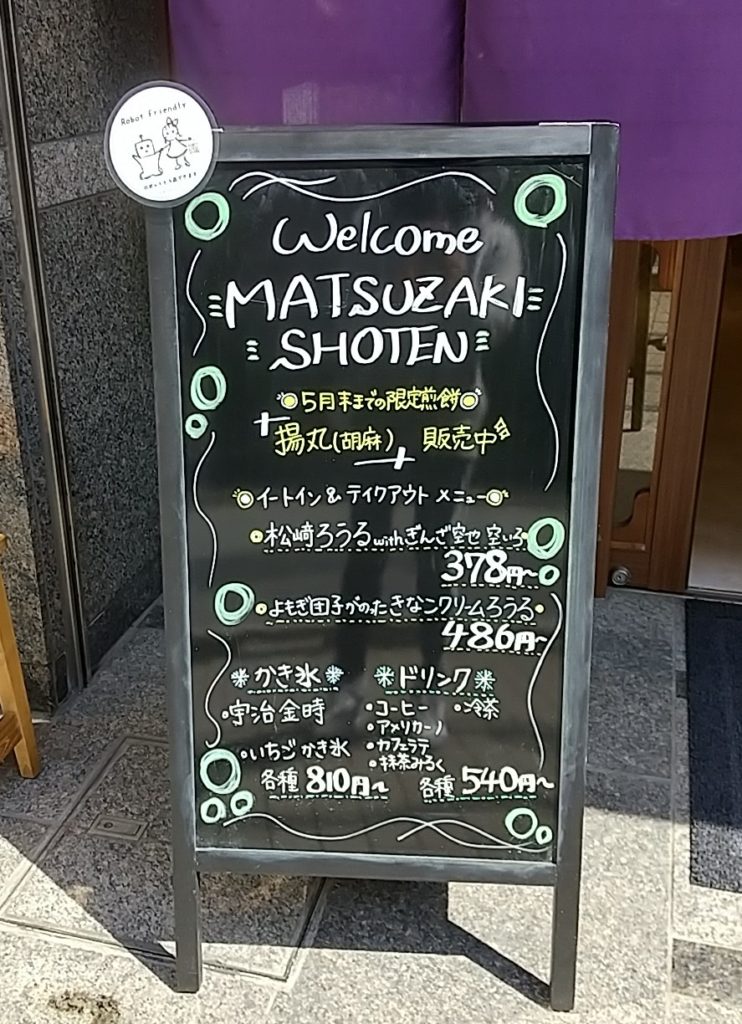 Robot Friendly
Welcome
MATSUZAKI
SHOTEN
5月末までの限定煎餅
揚丸(胡麻) 販売中
イートイン&テイクアウトメニュー
松崎ろうる withぎんざ空也 空いろ
378円~
よもぎ団子がのったきなこクリームろうる
486円~
かき氷
宇治金時
いちごかき氷
各種 810円~
ドリンク
・コーヒー ・冷茶
・アメリカーノ
・カフェラテ
・抹茶みるく
各種 540円~